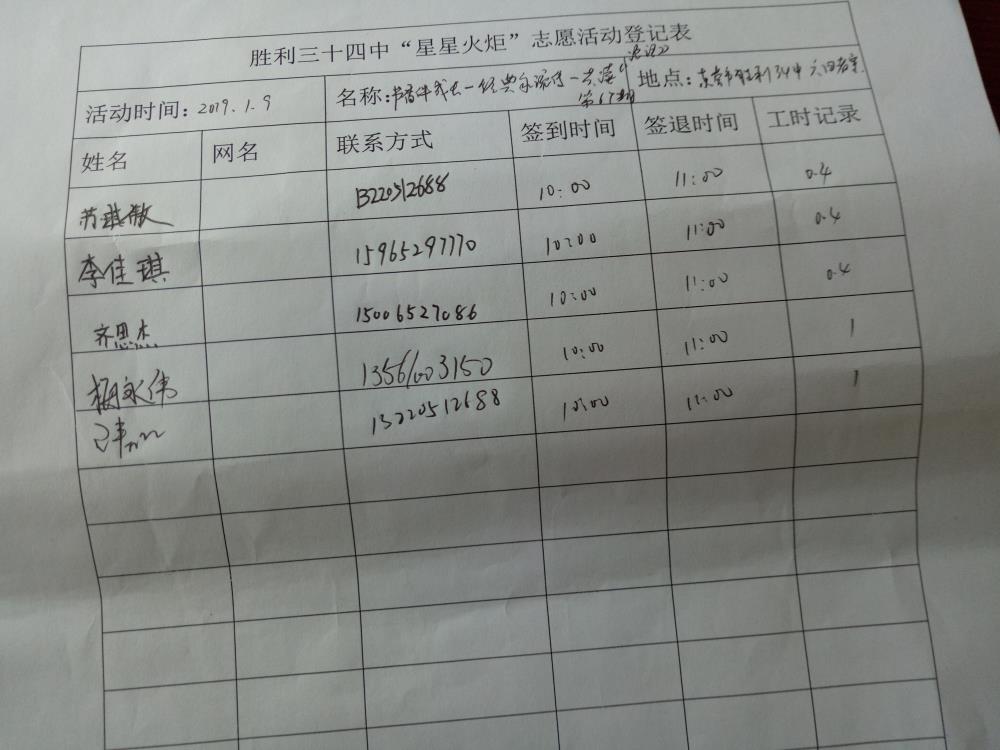 胜利三十四中“星星火炬”志愿活动登记表
活动时间：2019.1.9 名称：书香伴我长—经典永流传—共读《 第67期 地点：东营市胜利34中六四教室
姓名 网名 联系方式 签到时间 签退时间 工时记录
苏琪敏 13220512688 10:00 11:00 0.4
李佳琪 15965297770 10:00 11:00 0.4
齐思杰 15006527086 10:00 11:00 0.4
杨永伟 13561003150 10:00 11:00 1
13220512688 10:00 11:00 1